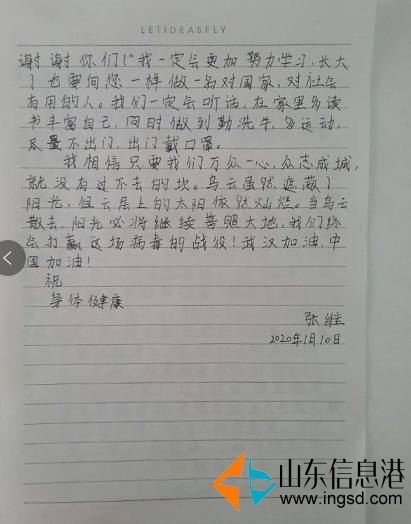 LETIDEASFLY
谢谢你们!"我一定会更加努力学习,长大
了也要向您一样做一名对国家,对社会
有用的人。我们一定会听话,在家里多读
书丰富自己,同时做到勤洗手,多运动,
尽量不出门,出门戴口罩。
我相信只要我们万众一心,众志成城,
就没有过不去的坎。乌云虽然遮蔽了
阳光,但云层上的太阳依然灿烂。当乌云
散去,阳光必将继续普照大地,我们终
会打赢这场病毒的战役!武汉加油,中
国加油!
祝
身体健康
张
2020年1月10日
山东信息港
www.ingsd.com